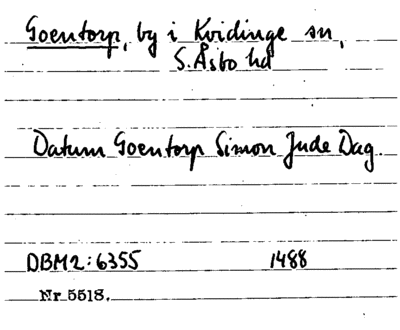 Goentorp, by i Kvidinge sn,
S. Åsbo hd
Datum Goentorp Simon Jude Dag.
DBM2:6355 1488
Nr 5513.